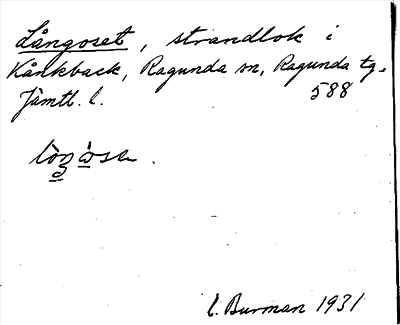 Långoset, strandlok i
Kånkback, Ragunda sn, Ragunda tg.
Jämtl. l. 588
C. Burman 1931